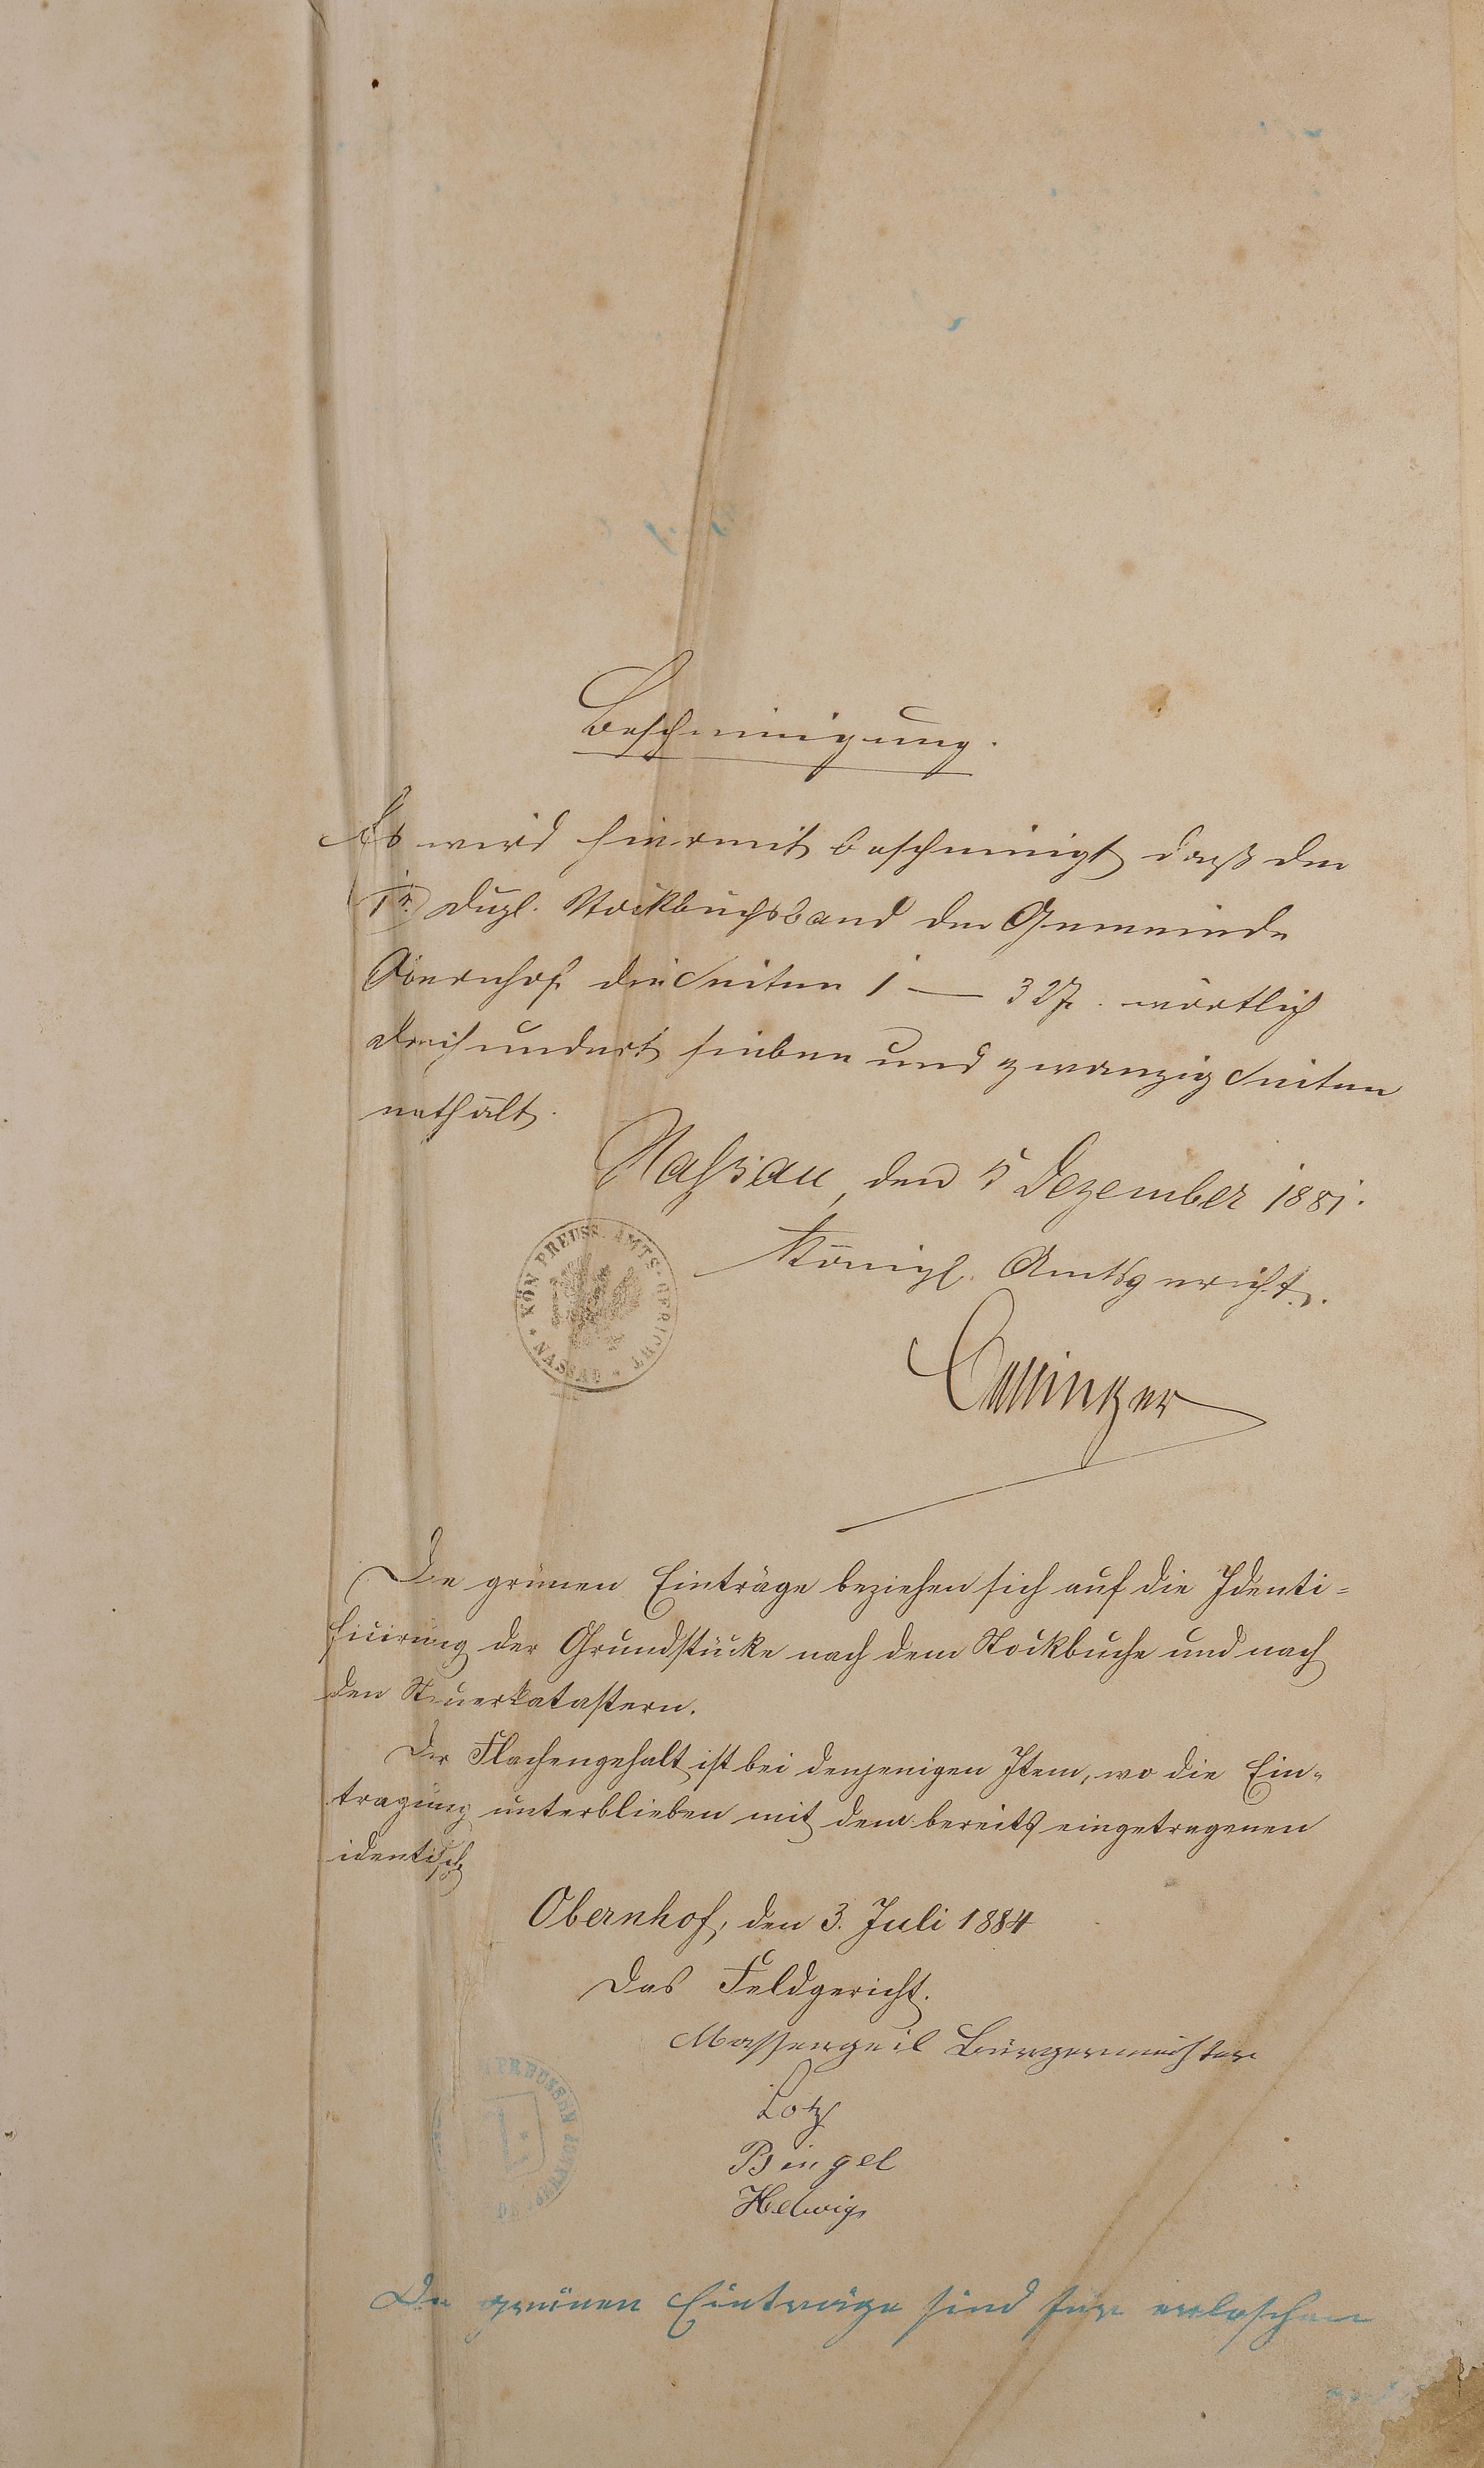 Bescheinigung.
Es wird hiermit bescheinigt daß der
Dupl. Stockbuchsband der Gemeinde
Obernhof die Seiten 1 — 327. wörtlich
dreihundert sieben und zwanzig Seiten
enthält.
Nassau, den 5 Dezember 1881.
KÖN. PREUSS. AMTS-GERICHT * NASSAU *
Königl. Amtsgericht.
Die grünen Einträge beziehen sich auf die Identi-
ficirung der Grundstücke nach dem Stockbuche und nach
den Steuerkatastern.
Der Flächengehalt ist bei denjenigen Item, wo die Ein-
tragung unterblieben mit dem bereits eingetragenen
identisch
Obernhof, den 3. Juli 1884
Das Feldgericht.
Massengeil Bürgermeister
PREUSSEN
Lotz
Bingel
Helwig
Die grünen Einträge sind für erloschen